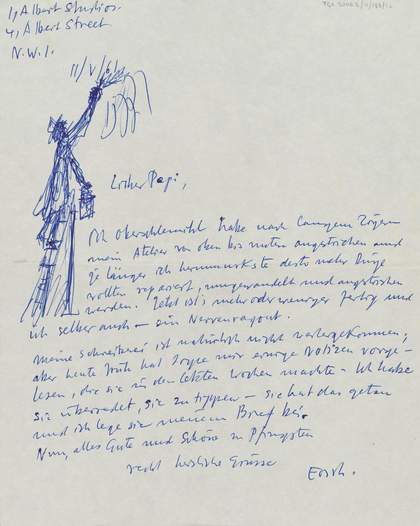 1, Albert Studios.
4, Albert Street
N.W.1.
11/V/61
Lieber Papi,
Ich Oberschlemihl habe nach langem Zögern
mein Atelier von oben bis unten angestrichen und
je länger ich herummurkste desto mehr Dinge
wollten repariert, umgewandelt und angestrichen
werden. Jetzt ist's mehr oder weniger fertig und
ich selber auch — ein Nervenragout.
Meine Schreiberei ist natürlich nicht vorwärtsgekommen;
aber heute früh hat Joyce mir einige Notizen vorge-
lesen, die sie in den letzten Wochen machte. Ich habe
sie überredet, sie zu tippen — sie hat das getan
und ich lege sie meinem Brief bei.
Nun, alles Gute und Schöne zu Pfingsten
recht herzliche Grüsse